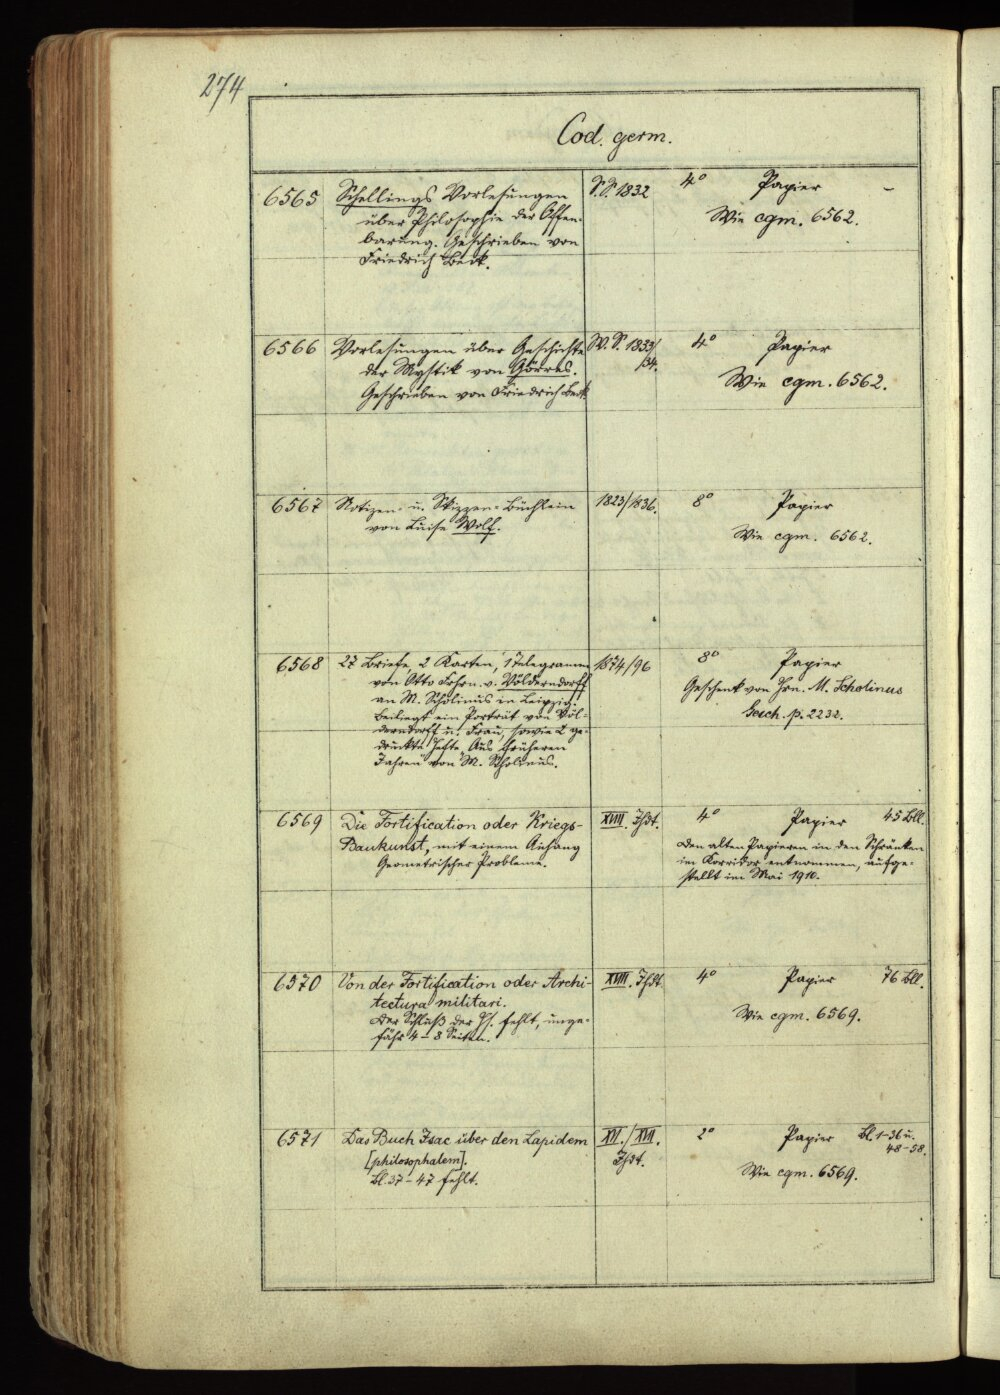 274
Cod. germ.
6565 Schellings Vorlesungen S.S. 1832 4° Papier –
über Philosophie der Offen- Wie cgm. 6562.
barung. Geschrieben von
Friedrich Beck.
6566 Vorlesungen über Geschichte W.S. 1833/ 4° Papier
der Mystik von Görres. 34. Wie cgm. 6562.
Geschrieben von Friedrich Beck
6567 Notizen- u. Skizzen-Büchlein 1823/1836. 8° Papier
von Luise Wolf. Wie cgm. 6562.
6568 27 Briefe, 2 Karten, 1 Telegramm 1874/96 8° Papier
von Otto Frhrn. v. Völderndorff Geschenk von Hrn. M. Scholinus
an M. Scholinus in Leipzig. Gesch. p. 2232.
Beiliegt ein Porträt von Völ-
derndorff u. Frau, sowie 2 ge-
druckte Hefte, Aus früheren
Jahren von M. Scholinus.
6569 Die Fortification oder Kriegs- XVIII. Jhdt. 4° Papier 45 Bll.
Baukunst, mit einem Anhang Den alten Papieren in den Schränken
Geometrischer Probleme. im Korridor entnommen, aufge-
stellt im Mai 1910.
6570 Von der Fortification oder Archi- XVIII. Jhdt. 4° Papier 76 Bll.
tectura militari. Wie cgm. 6569.
Der Schluß der Hs. fehlt, unge-
fähr 4–8 Seiten.
6571 Das Buch Isac über den Lapidem XVI./XVII. 2° Papier Bl. 1–36 u.
[philosophalem]. Jhdt. 48–58.
Bl. 37–47 fehlt. Wie cgm. 6569.